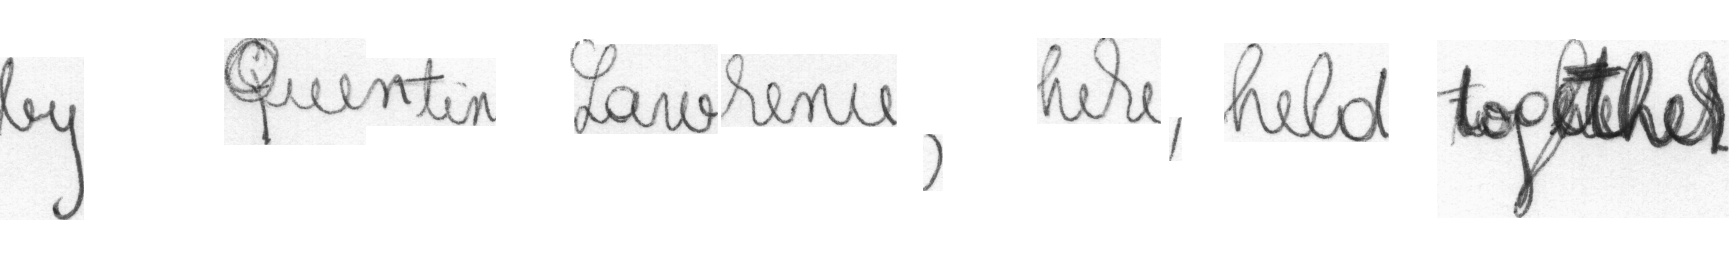 by Quentin Lawrence, here, held together